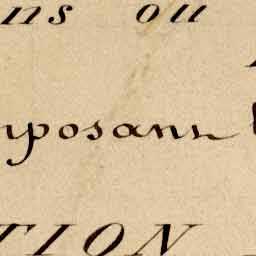 ns ou
mposans
TION